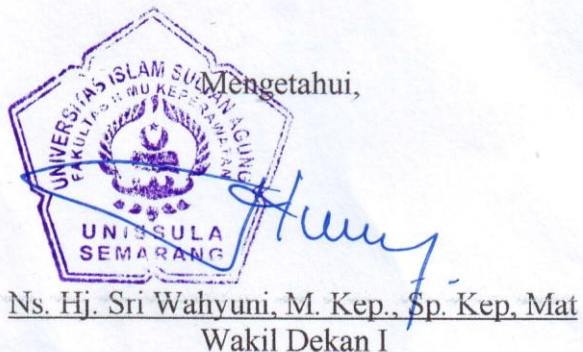 Mengetahui,
UNIVERSITAS ISLAM SULTAN AGUNG
FAKULTAS ILMU KEPERAWATAN
UNISSULA
SEMARANG
Ns. Hj. Sri Wahyuni, M. Kep., Sp. Kep, Mat
Wakil Dekan I